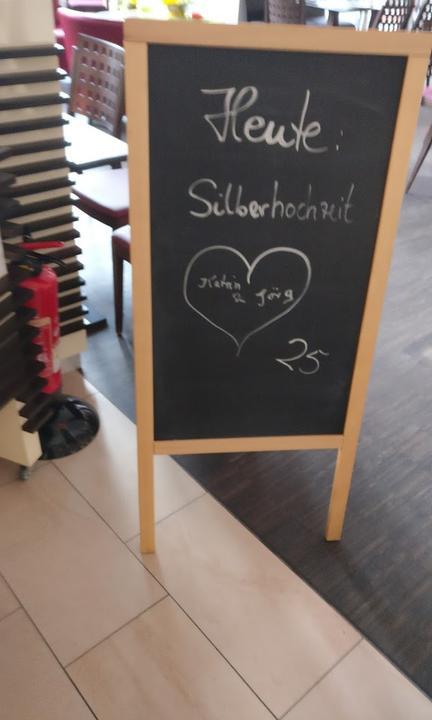 Heute:
Silberhochzeit
Katrin
& Jörg
25